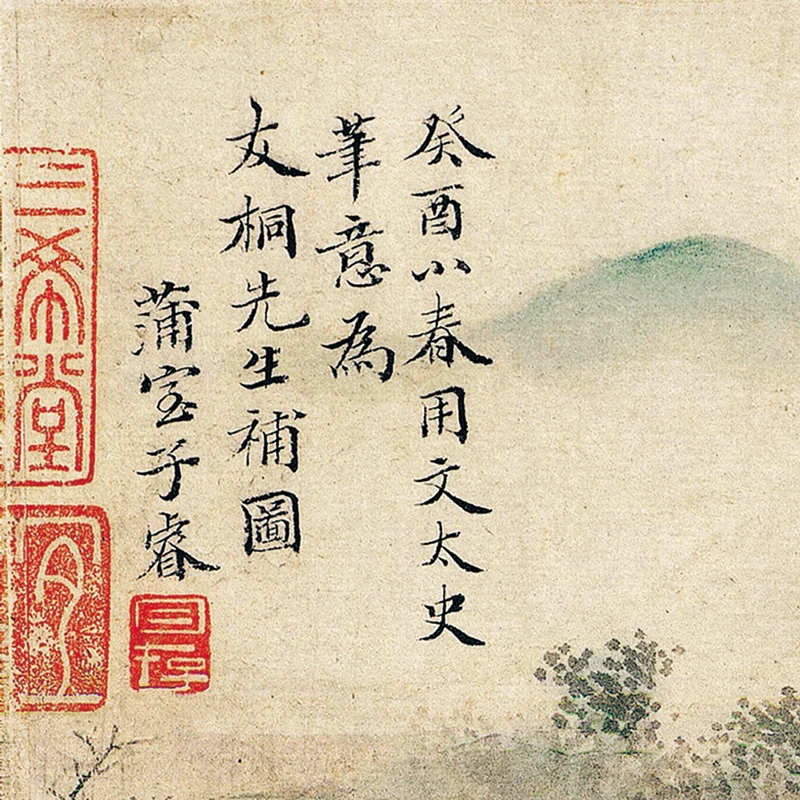 癸酉小春用文太史
筆意為
友桐先生補圖
蒲室子睿
三希堂